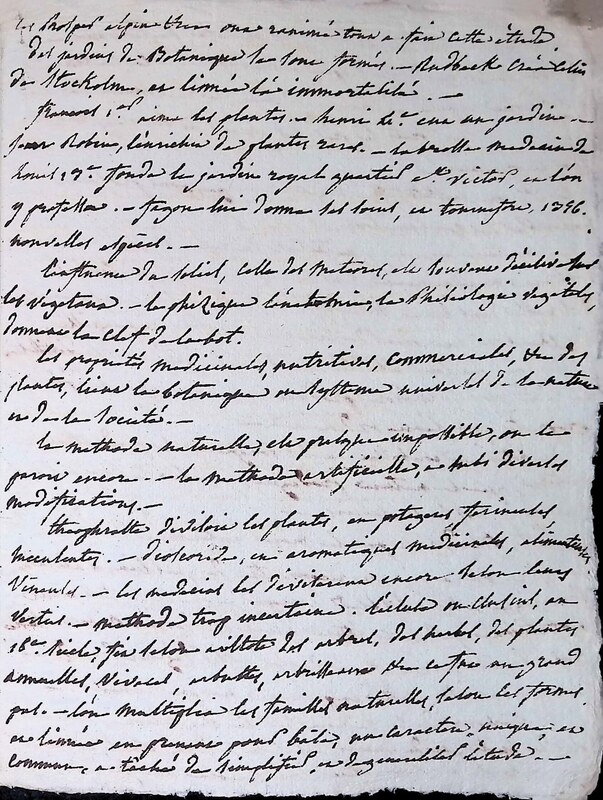 les Prosper alpin &ra ont ranimé tour a tour cette étude
des jardins de Botanique se sont formés. – Rudbeck créa celui
de Stockolm, et linnée l'a immortalisé. –
francois 1er aima les plantes. – henri 4e eut un jardin –
jean Robin, l'enrichit de plantes rares. – la brosse medecin de
louis 13e fonda le jardin royal quartier St Victor, et l'on
y professa. – fagon lui donna ses soins, et tournefort, 1356.
nouvelles espèces. –
l'influence du soleil, celle des meteores, est souvent décisive sur
les végetaux. – la phisique l'anatomie, la Phisiologie végétales,
donnent la clef de la bot.
les proprietés medicinales, nutritives, commerciales, &ra des
plantes, lient la botanique au systeme universel de la nature
et de la societé. –
la methode naturelle, est presque impossible, ou le
paroit encore. – la methode artificielle, a subi diverses
modifications. –
theophraste divisoit les plantes, en potageres farineuses
succulentes. – dioscoride, en aromatiques medicinales, alimenteuses
Vineuses. – les medecins les diviserent encore selon leurs
vertus. – methode trop incertaine. l'ecluse ou clusius, au
16e siecle, fit selon aristote des arbres, des herbes, des plantes
annuelles, vivaces, arbustes, arbrisseaux &ra ce fut un grand
pas. – l'on multiplia les familles naturelles, selon les formes
et linnée en prenant pour base, un caractere, unique, et
commun, a tâché de simplifier, et de generaliser l'étude. –